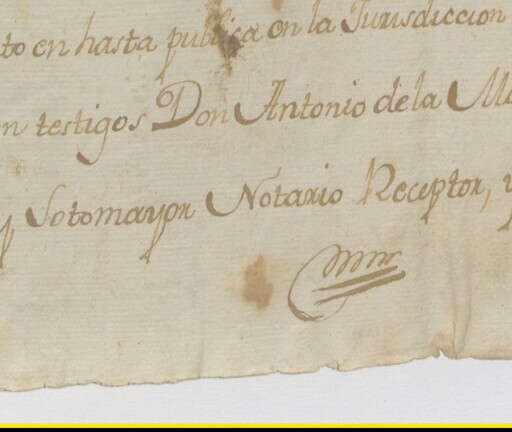 to en hasta publica en la Jurisdiccion
n testigos Don Antonio dela
y Sotomayor Notario Receptor,